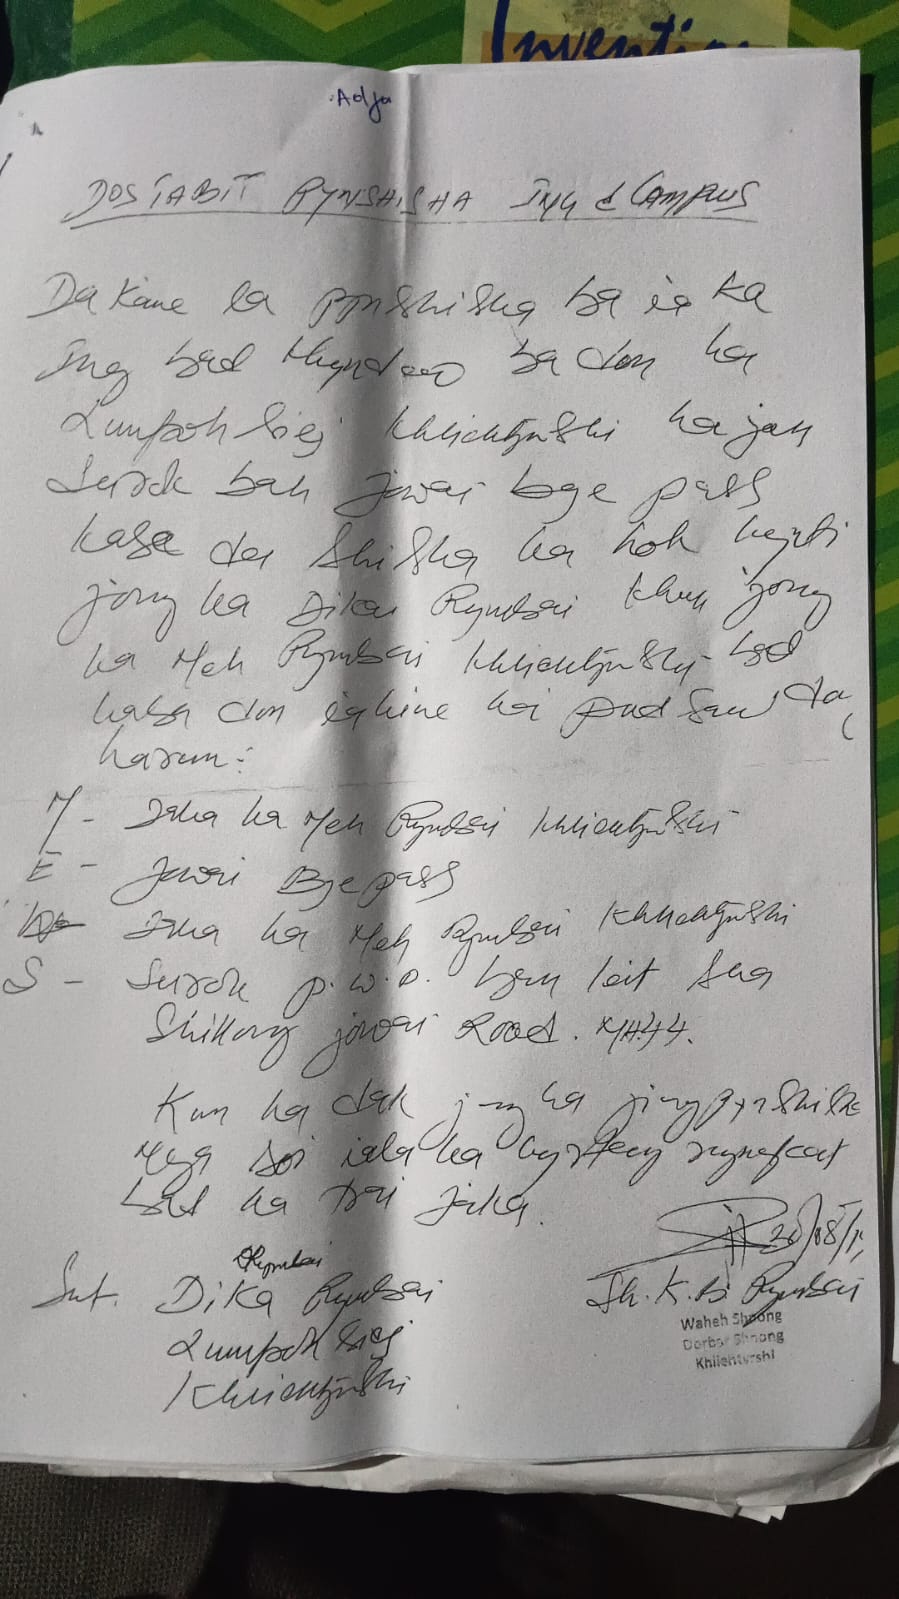 Invention
Adja
DOSTABIT PYNSHISHA ING & CAMPUS
Da Kane la pynshisha ba ia ka
Ing bad Khyndaw ba don ha
Lumpoh Siej Khliehtyrshi hajan
Surok bah Jowai bye pass
kaba da shisha ka hok
jong ka Dika Rymbai khun jong
ka Meh Rymbai Khliehtyrshi bad
kaba don hi pud saw da
harum:-
N - Jaka ka Meh Rymbai Khliehtyrshi
E - Jowai Bye pass
Jaka ka Meh Rymbai Khliehtyrshi
S - Surok P.W.D. ban leit sha
Shillong jowai Road. NH44.
Kum ka dak jong ka jingpynshisha
bad ka trai jaka.
Rymbai
Smt. Dika Rymbai
Lumpoh Siej
Khliehtyrshi
Sh. K. B Rymbai
Waheh Shnong
Dorbar Shnong
Khliehtyrshi